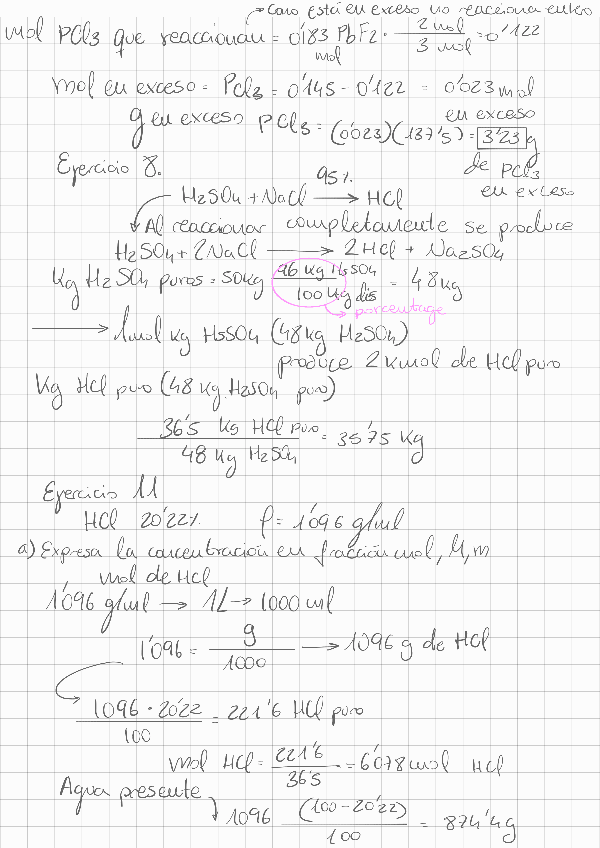 Como está en exceso no reacciona entero
mol PCl3 que reaccionan = 0'183 PbF2 · 2 mol / 3 mol = 0'122
mol
mol en exceso = PCl3 = 0'145 - 0'122 = 0'023 mol
en exceso
g en exceso PCl3 = (0'023)(137'5) = 3'23 g
de PCl3
en exceso
Ejercicio 8.
95%
H2SO4 + NaCl → HCl
Al reaccionar completamente se produce
H2SO4 + 2NaCl → 2HCl + Na2SO4
Kg H2SO4 puros = 50kg 96 Kg H2SO4 / 100 Kg dis = 48kg
porcentage
→ 1mol kg H2SO4 (48kg H2SO4)
produce 2 Kmol de HCl puro
Kg HCl puro (48 Kg H2SO4 puro)
36'5 kg HCl puro / 48 Kg H2SO4 = 35'75 Kg
Ejercicio 11
HCl 20'22% ρ = 1'096 g/ml
a) Expresa la concentración en fracción mol, M, m
mol de HCl
1'096 g/ml → 1L → 1000 ml
1'096 = g / 1000 → 1096 g de HCl
1096 · 20'22 / 100 = 221'6 HCl puro
mol HCl = 221'6 / 36'5 = 6'078 mol HCl
Agua presente
1096 (100 - 20'22) / 100 = 874'4g